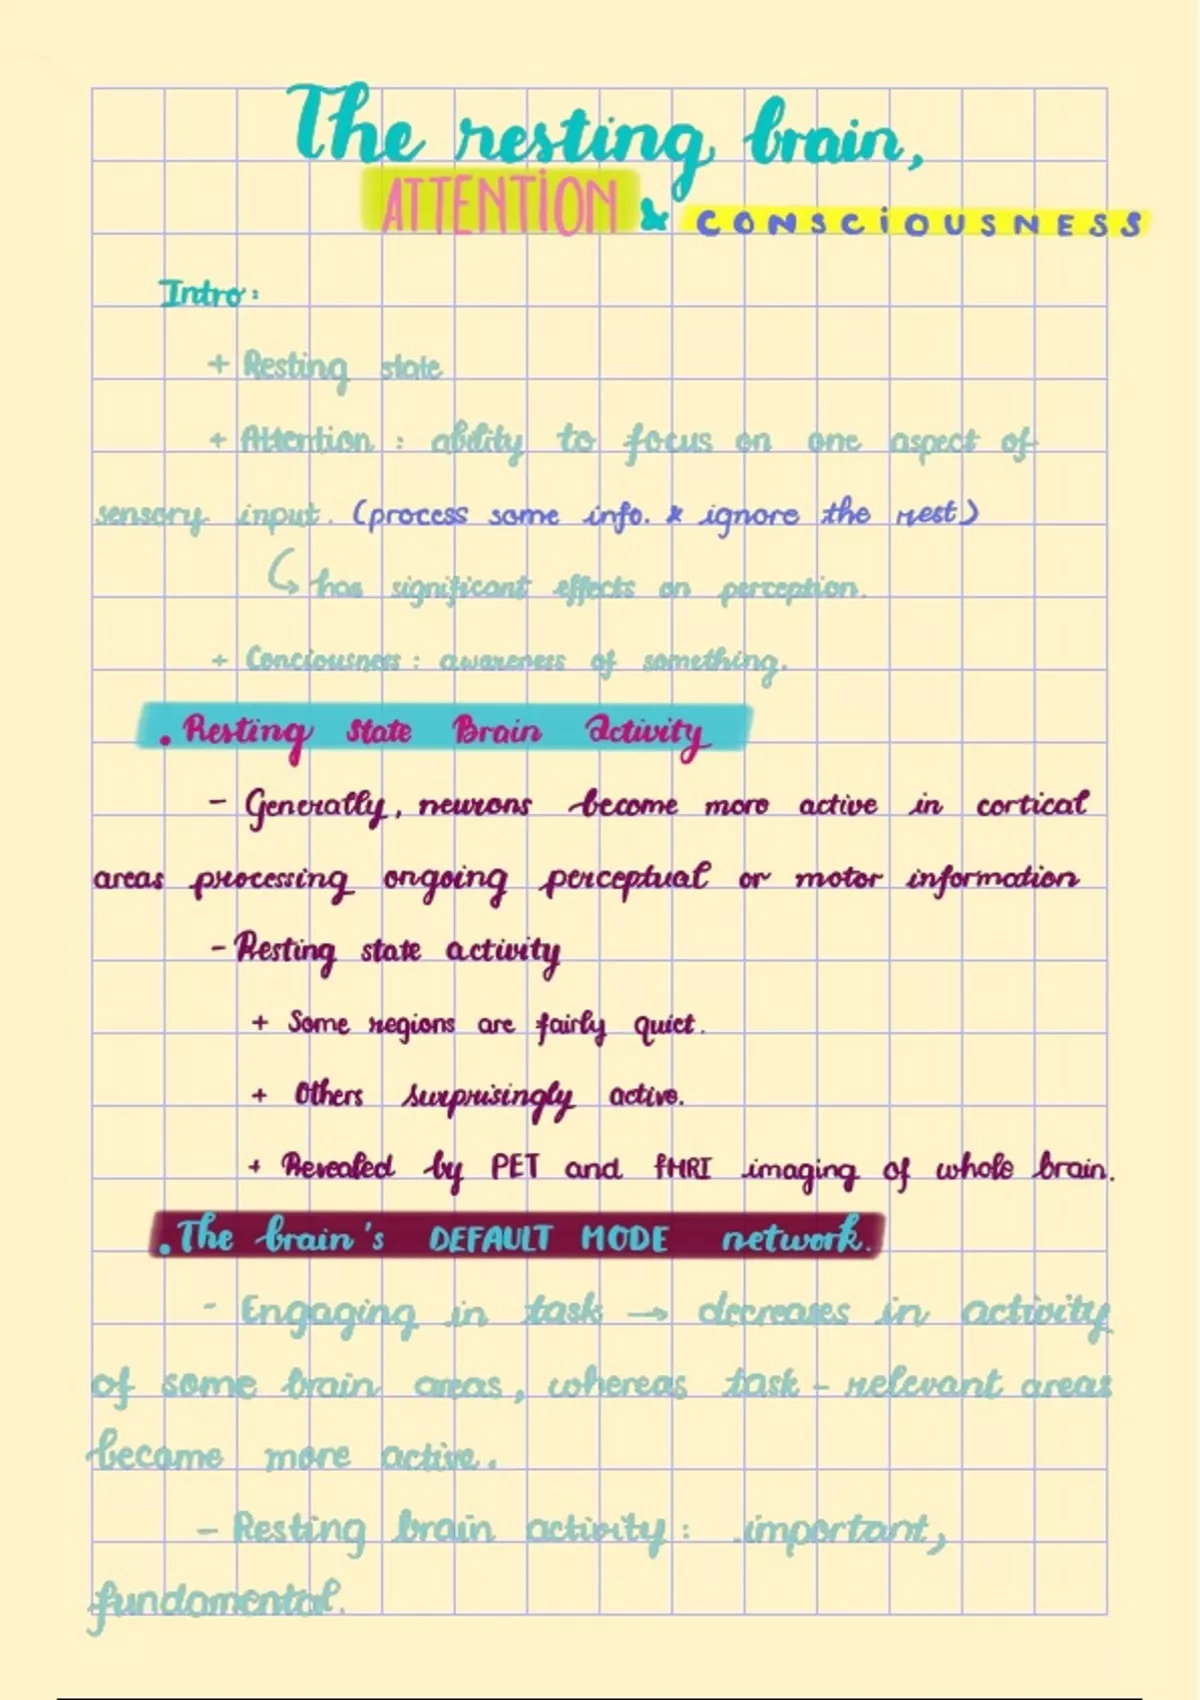 The resting brain,
ATTENTION & CONSCIOUSNESS
Intro:
+ Resting state
+ Attention : ability to focus on one aspect of
sensory input. (process some info. & ignore the rest)
↳ has significant effects on perception.
+ Conciousness : awareness of something.
. Resting state Brain activity
- Generally, neurons become more active in cortical
areas processing ongoing perceptual or motor information
- Resting state activity
+ Some regions are fairly quiet.
+ Others surprisingly active.
+ Revealed by PET and fMRI imaging of whole brain.
. The brain's DEFAULT MODE network.
- Engaging in task → decreases in activity
of some brain areas, whereas task - relevant areas
become more active.
- Resting brain activity : important,
fundamental.